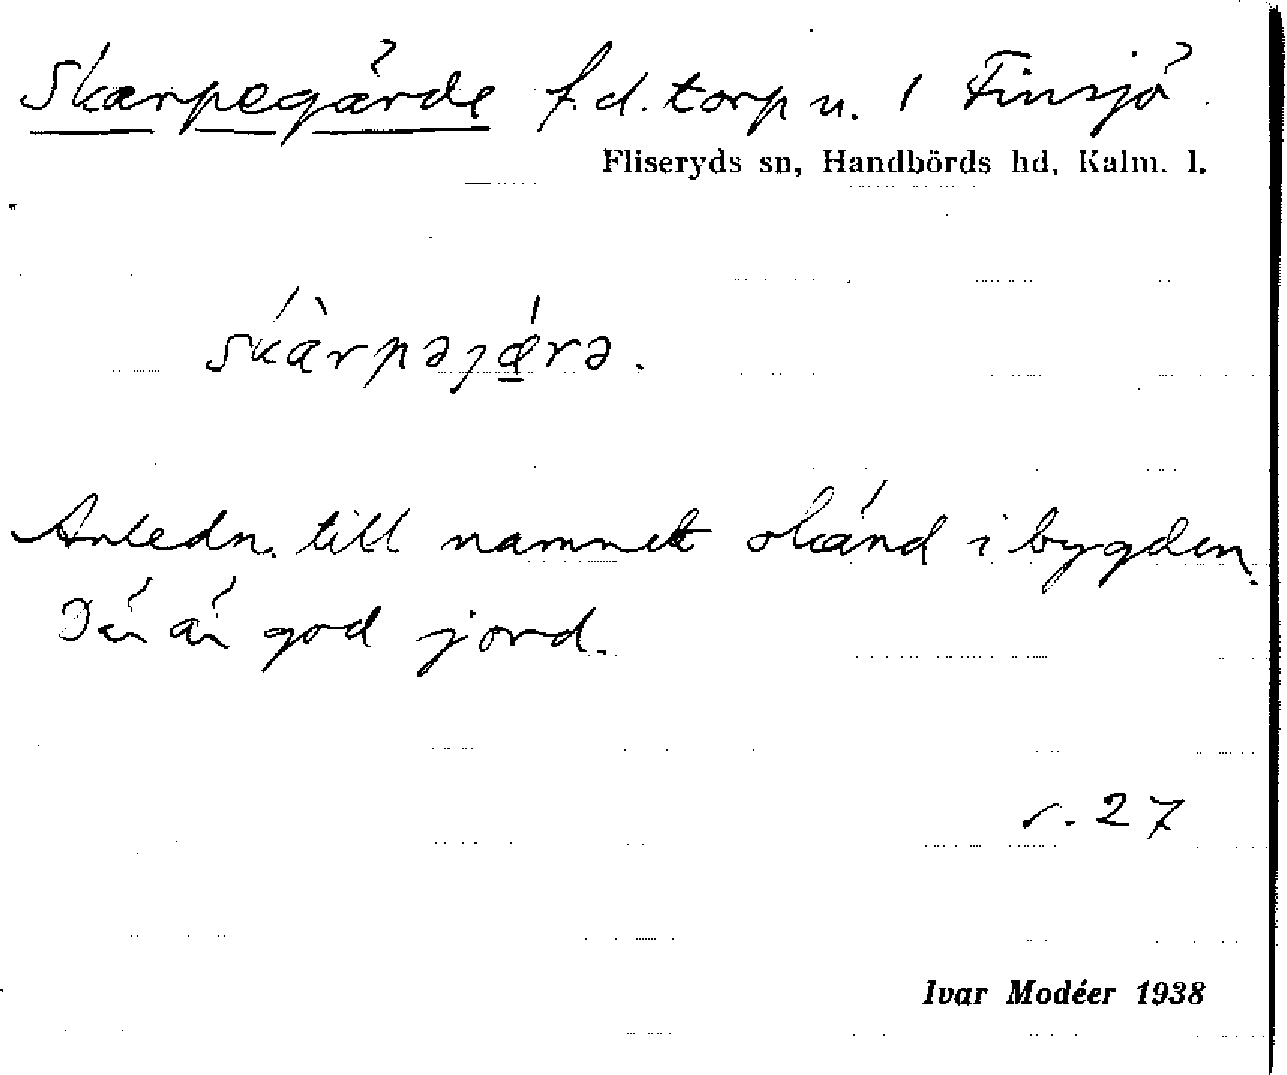 Skarpegärde f.d. torp u. 1 Finsjö.
Fliseryds sn, Handbörds hd, Kalm. l.
skàrpəjǽrə.
Anledn. till namnet okänd i bygden.
Där är god jord.
s. 27
Ivar Modéer 1938